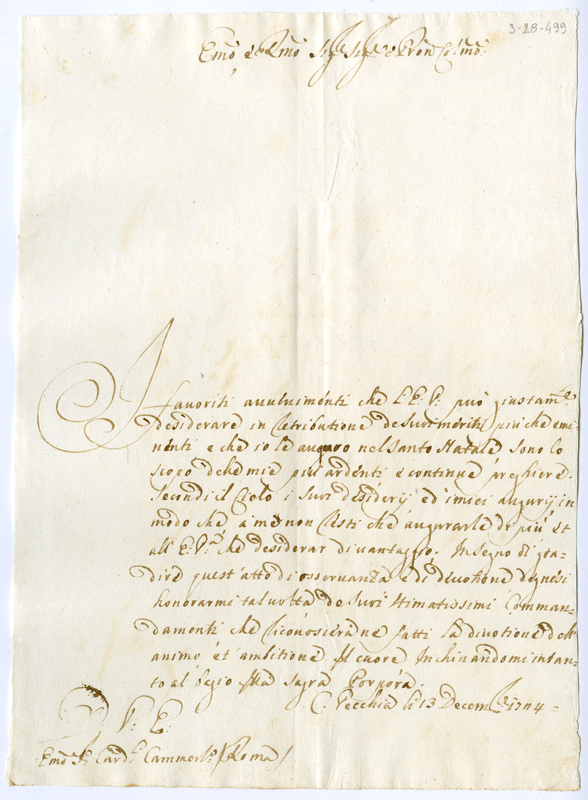 3-28-499
Emo e Rmo Sigr Sigr e Pron Colmo
I favoriti auuenimenti che l'E.V. può giustamte
desiderare in retributione de suoi meriti più che emi
nenti e che io le auguro nel Santo Natale sono lo
scopo delle mie più ardenti e continue preghiere.
Secondi il Cielo i suoi desiderij ed i miei augurij in
modo che a me non resti che augurarle di più et
all' E.V. che desiderar di uantaggio. In segno di gra-
dire quest'atto di osseruanza e di diuotione degnisi
honorarmi tal uolta de suoi stimatissimi Comman-
damenti che riconoscerà ne fatti la diuotione dell'
animo et ambitione del cuore Inchinandomi intan-
to al bagio della sagra Porpora.
C. Vecchia li 13 Decem 1704-
D V: E:
Emo Sr Cardl Cammerlo (Roma)